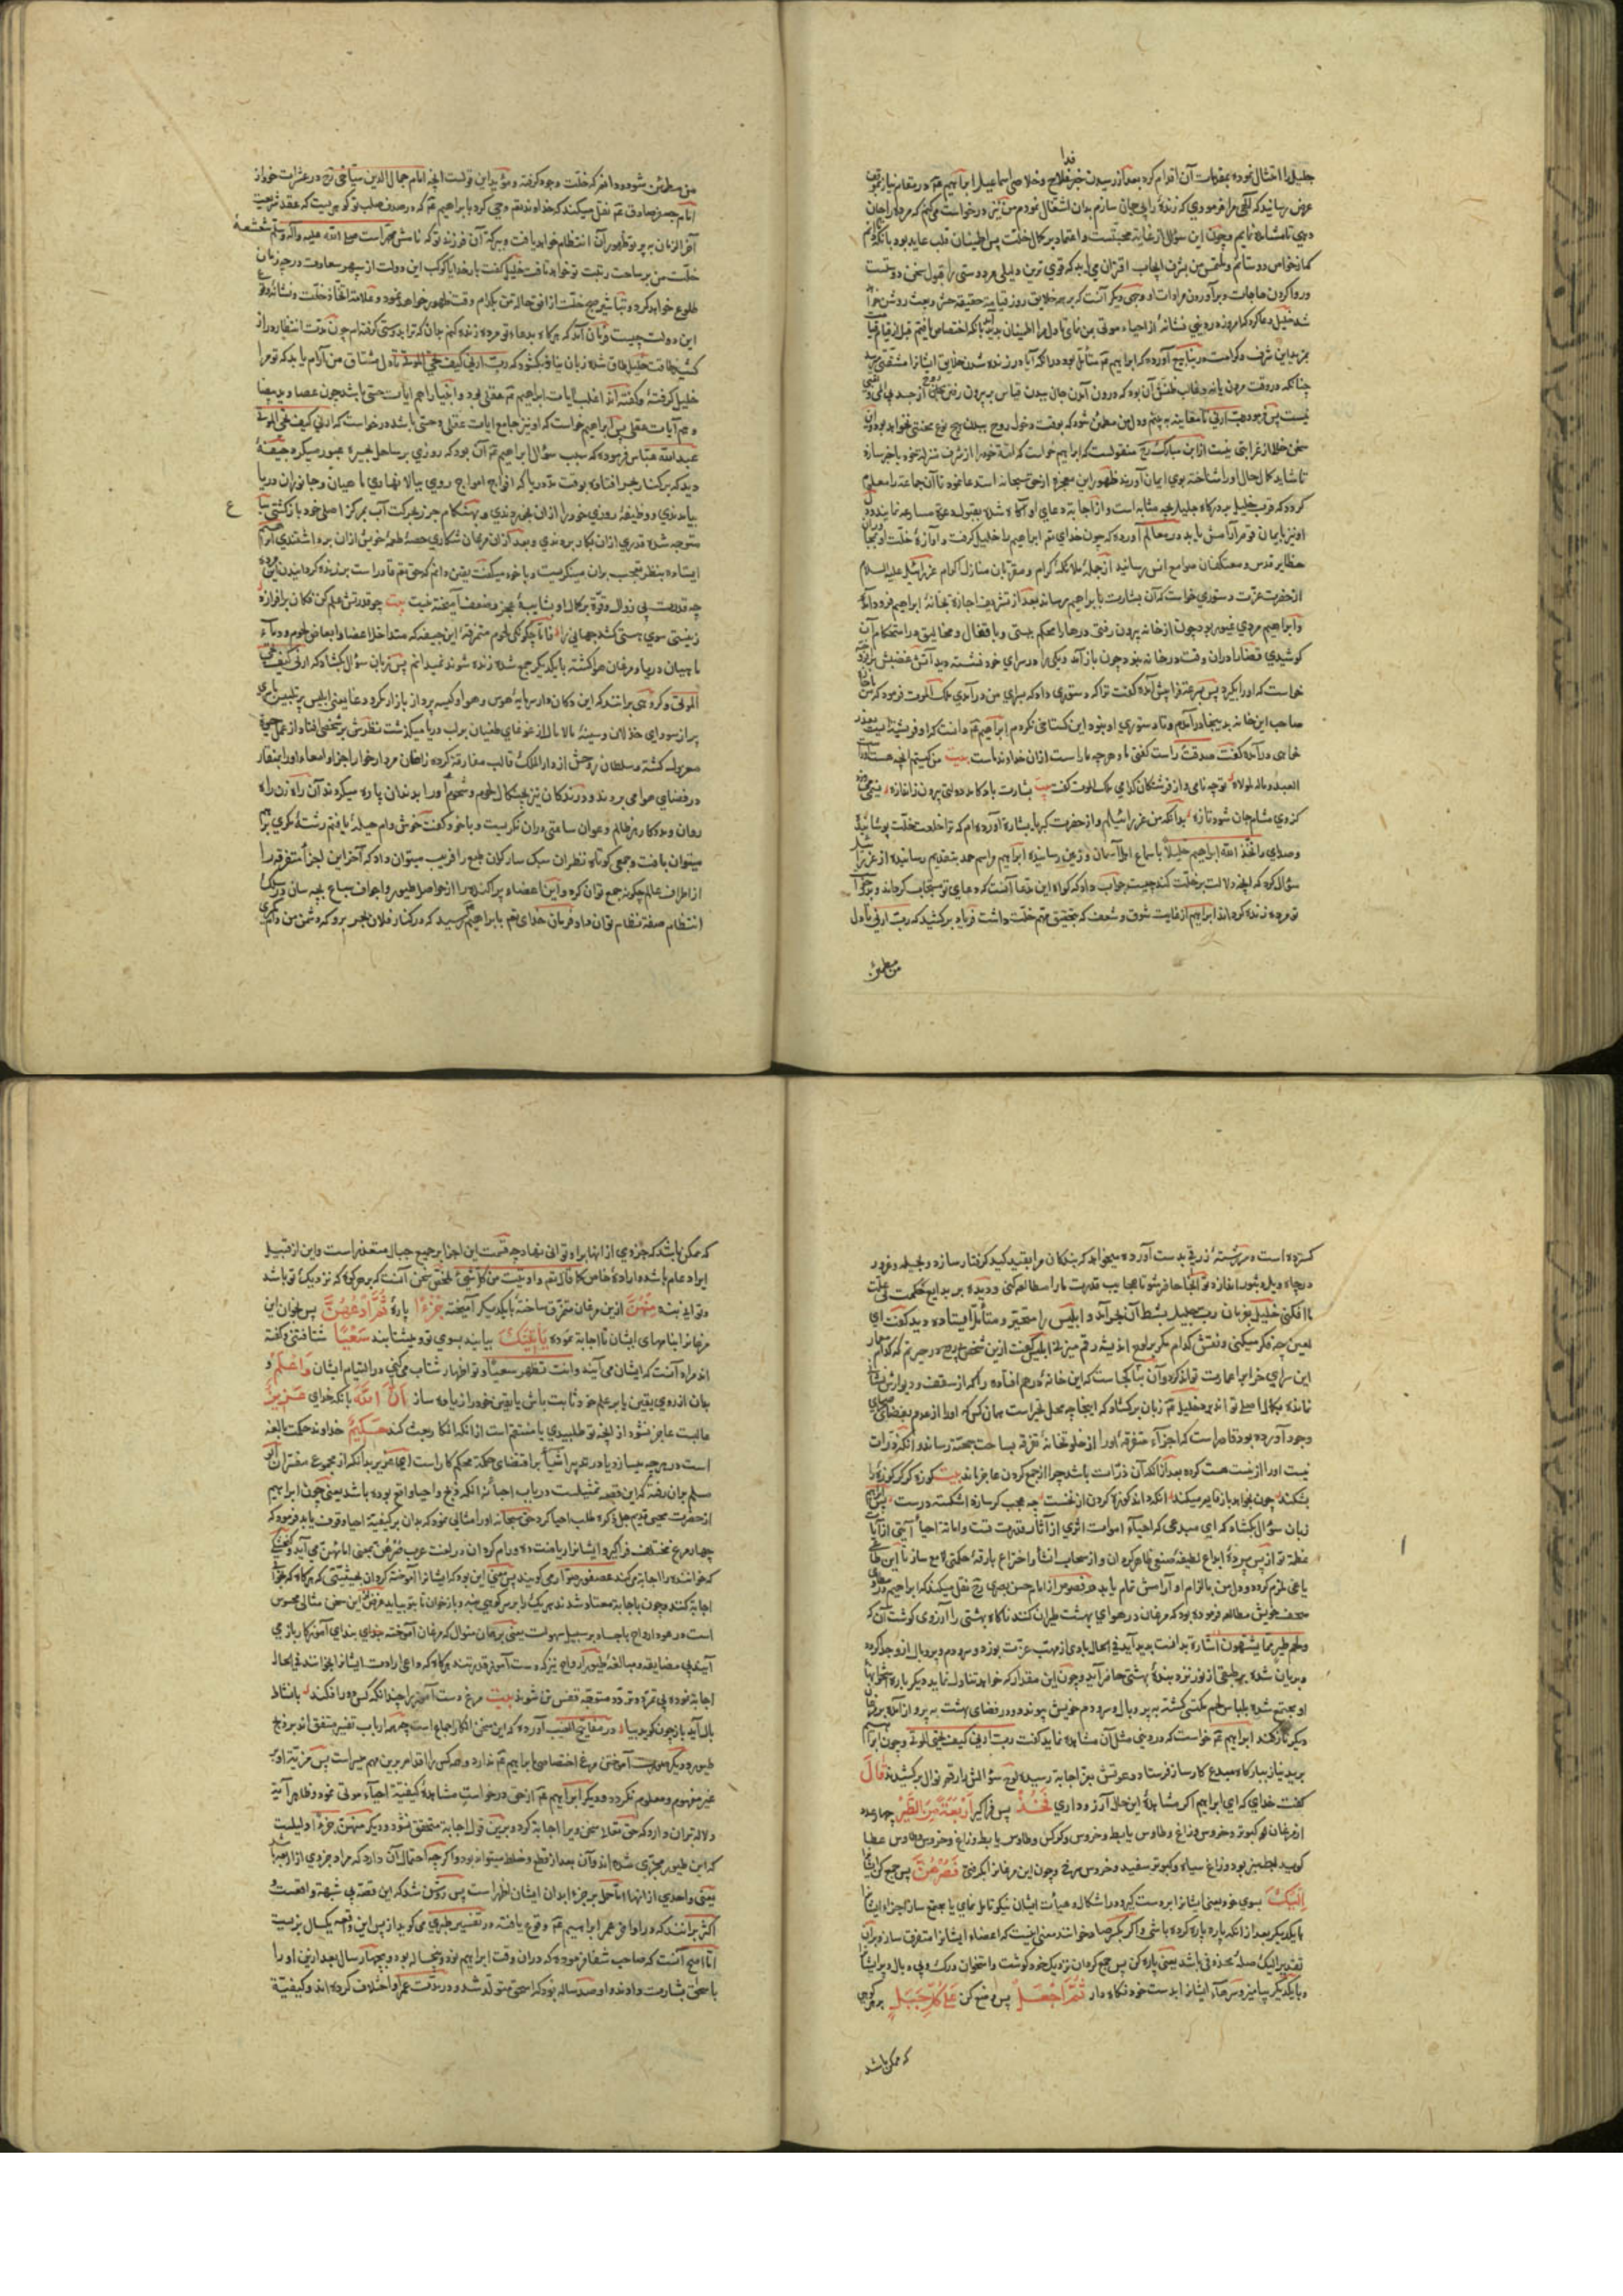 فدا
جلیل را امتثال نموده بمقدمات آن اقدام کرد بعد از رسیدن خبر فلاح و خلاصی اسماعیل ابراهیم تم در مقام نیاز بموقف
عرض رسانید که الهی مرا فرمودی که زندهٔ را بی جان سازم بدان اشتغال نمودم من نیز درخواست میکنم که مردهٔ را جان
دهی تا مشاهده نمایم و چون این سؤال از غایت محبتست و اعتماد بر کمال خلت پس اطمینان قلب عاید بود بآنکه دانم
که از خواص دوستانم و ملتمس من بشرف ایجاب اقتران می یابد که قوی ترین دلیلی بر دوستی را قبول سخن دوستست
و روا کردن حاجات و برآوردن مرادات او و وجهی دیگر آنست که بر همه خلایق روز قیامت حقیقة حشر و بعث روشن خواهد
شد خلیل دعا کرد که امروز در دنیی نشانهٔ از احیاء موتی بمن نمای تا دل مرا اطمینان پدید آید بآنکه اختصاص یافتم قبل از قیام قیامت
بمزید این شرف و کرامت
چنانکه در وقت مردن
نیست پس فرمود رب ارنی تا معاینه به بینم و دل من مطمئن شود که بوقت دخول روح ببدن هیچ نوع محنتی نخواهد بود
سخن خالی از غرابتی نیست از ابن مبارک رح منقولست که ابراهیم خواست که امّة خود را از شرف منزلهٔ خود باخبر سازد
تا شاید کمال حال او را شناخته بوی ایمان آورند
کردد که قرب خلیل بدرکاه جلیل بچه مثابه است و از اجابة دعای او آکاه شده بقبول دعوة مسارعه نمایند
اونیز بایمان قوم آرامش یابد در معالم آورده که چون خدای تم ابراهیم را خلیل کرفت و آوازهٔ خلت او بمجاوران
حظایر قدس و معتکفان صوامع انس رسانید از جملهٔ ملائکهٔ کرام و مقربان منازل اکرام عزرائیل علیه السلام
از حضرت عزت دستوری خواست که آن بشارت بابراهیم رساند بعد از تشریف اجازة بخانهٔ ابراهیم فرود آمد
و ابراهیم مردی غیور بود چون از خانه بیرون رفتی درها را محکم ببستی و باقفال و مخالیق در استحکام آن
کوشیدی قضا را دران وقت در خانه نبود چون باز آمد و یکی را در سرای خود نشسته دید آتش غضبش برافروخت
خواست که او را بگیرد پس بسرعة فرا پیش آمده کفت ترا که دستوری داد که بسرای من در آمدی ملک الموت فرمود که من با اجازة
صاحب این خانه بدینجا در آمدم و تا دستوری او نبود این کستاخی نکردم ابراهیم تم دانست که او فرشتهٔ ایست
خاصی در آمده کفت صدقت راست کفتی ما و هر چه ماراست ازان خداوند ماست بیت من کیستم آنچه هست
العبد و ماله لمولاه تو چه نامی و از فرشتکان کدامی ملک الموت کفت بیت بشارت باد
کزوی مشام جان شود تازه بدانکه من عزرائیلم و از حضرت کبریا بشارة آورده ام که ترا خلعت خلت پوشانید
و صدای واتخذ الله ابراهیم خلیلا باسماع اهل آسمان و زمین رسانیده ابراهیم مراسم حمد بتقدیم رسانید از عزرائیل
سؤال کرد که آنچه دلالت بر خلت کند چیست جواب داد که کواه این مدعا آنست که دعای تو مستجاب کرداند و بدرخواست
تو مرده زنده کرداند ابراهیم از غایت شوق و شعف که بتحقیق مهم خلت داشت فریاد برکشید که رب ارنی تا دل
من مطمئن
من مطمئن شود
امام جعفر صادق تم نقل میکند که خداوند تم وحی کرد بابراهیم تم که در صدف صلب تو کوهریست که عقد شریعت
آخر الزمان به پرتو ظهور آن انتظام خواهد یافت و ببرکة آن فرزند تو که نامش محمد است صلی الله علیه وآله وسلم شعشعهٔ
خلت من بر ساحت رتبت تو خواهد تافت خلیل کفت بار خدایا کوکب این دولت از سپهر سعادت در چه زمان
طلوع خواهد کرد و تباشیر صبح خلت از افق حالة من بکدام وقت ظهور خواهد نمود و علامة اتخاذ خلت و نشانهٔ وقوع
این دولت چیست فرمان آمد که هرکاه بدعاء تو مرده زنده کنم بدان که ترا بدوستی کرفته ام چون مدت انتظار دراز
کشید طاقت خلیل طاق شده زبان نیاز بکشود که رب ارنی کیف تحی الموتی تا دل مشتاق من آرام یابد که تو مرا
خلیل کرفتهٔ و کفته اند اغلب ایات ابراهیم تم عقلی بود و انبیا را هم ایات حسی باشد چون عصا و ید بیضا
و هم آیات عقلی پس ابراهیم خواست که او نیز جامع ایات عقلی و حسی باشد درخواست که ارنی کیف تحی الموتی
عبد الله عباس فرموده که سبب سؤال ابراهیم تم آن بود که روزی بر ساحل بحیره عبور میکرد جیفهٔ
دید که بر کنار بحر افتاده بوقت مد دریا که افواج امواج روی ببالا نهادی ماهیان و جانوران دریا
بیامدندی و وظیفهٔ روزی خود را ازان بخوردندی و بهنکام جزر بحرکت آب بمرکز اصلی خود بازکشتی سباع
متوجه شده قدری ازان بکار بردندی و بعد ازان مرغان شکاری حصهٔ طعمهٔ خویش ازان برداشتندی ابراهیم
ایستاده بنظر تعجب بران مینکریست و با خود میکفت یقین دانم که حق تم قادر است بر زنده کردانیدن این مرده
چه قدرت بی زوال و قوة بر کمال او بشایبهٔ عجز و ضعف آمیخته نیست بیت چو قدرتش علم کن فکان برافرازد
ز نیستی سوی هستی کشد جهانی را فاما چکونکی لحوم متفرقهٔ این جیفه که متداخل اعضا و ابعاض لحوم و دماء
ماهیان دریا و مرغان هوا کشته بایکدیکر جمع شده زنده شوند نمیدانم پس زبان سؤال بکشاد که ارنی کیف تحی
الموتی و کروهی برانند که این دکان دار سرمایهٔ هوس و هوا و کیسه پرداز بازار مکر و دغا یعنی ابلیس پر تلبیس با سری
پر از سودای خذلان و سینهٔ مالامال از غوغای طغیان بر لب دریا میکذشت نظرش بر شخصی افتاد از عمل حیوة
معزول کشته و سلطان روحش از دار الملک قالب مفارقة کرده زاغان مردارخوار اجزا و امعاء او را بمنقار
در فضای هوا می بردند و درندکان نیز بچنکال لحوم و شحوم او را بدندان پاره میکردند آن راه زن راه
روان و مددکار هر ظالم و عوان ساعتی دران نکریست و با خود کفت خوش دام حیلهٔ یافتم رشتهٔ مکری برای
میتوان بافت و جمعی کوتاه نظران سبک سار کران طبع را فریب میتوان داد که آخر این اجزا متفرقه را
از اطراف عالم چکونه جمع توان کرد و این اعضاء پراکنده را از حواصل طیور و اجواف سباع بچه سان در سلک
انتظام صفة نظام توان داد فرمان خدای تم بابراهیم رسید که در کنار فلان بحر برو که دشمن من دام مکری
کسترده است و سررشتهٔ زرقی بدست آورده میخواهد که بندکان مرا بقید کید کرفتار سازد و بحیله و غرور
در چاه ویل و ثبور اندازد تو آنجا حاضر شو تا عجایب قدرت ما را مطالعه کنی و دیده بر بدایع حکمت بی علت
ما افکنی خلیل بفرمان رب جلیل بشط آن بحر آمد و ابلیس را متحیر و متأمل ایستاده دید کفت ای
لعین چه فکر میکنی و نقش کدام مکر بر لوح اندیشه رقم میزنی ابلیس کفت ازین شخص بی روح در حیرتم که کدام معمار
این سرای خراب را عمارت تواند کرد و آن بنا کجاست که این خانهٔ درهم افتاده را که از سقف و دیوارش نشان
نمانده بحال اصلی تواند برد خلیل تم زبان برکشاد که اینجا چه محل تحیر است همان کس که او را از عدم بفضای صحرای
وجود آورده بود قادر است که اجزاء متفرقهٔ او را از خلوتخانهٔ تفرقه بساحت جمعیة رساند و آنکه ذرات
نیست او را از نیست هست کرد بعد از آنکه آن ذرات باشد چرا از جمع کردن عاجز ماند بیت کوزه کر کر کوزهٔ را
بشکند چون بخواهد باز قایم میکند آنکه داند کوزهٔ کردن از نخست چه عجب کر سازد اشکسته درست پس ابراهیم
زبان سؤال بکشاد که ای مبدعی که احیاء اموات اثری از آثار قدرت تست و اماتة احیا آیتی از آیات
عظمة تو از پس پردهٔ ابداع لطیفهٔ صنعی ظاهر کردان و از سحاب انشا و اختراع بارقهٔ حکمتی لامع ساز تا این طاغی
یاغی ملزم کردد و دل من بالزام او آرامش تمام یابد در فصوص از امام حسن بصری رح نقل میکند که ابراهیم در مطاوی
صحف خویش مطالعه فرموده بود که مرغان در هوای بهشت طیران کنند ناکاه بهشتی را آرزوی کوشت آن که
ولحم طیر مما یشتهون اشارة بدانست پدید آید فی الحال بادی از مهب عزت بوزد و سر و دم و پر و بال از و جدا کرده
و بریان شده بر طبقی از نور نزد بندهٔ بهشتی حاضر آید و چون این مقدار که خواهد تناول نماید دیکر باره استخوانها
او مجتمع شده بلباس لحم مکتسی کشته به پر و بال و سر و دم خویش پیوندد و در فضای بهشت به پرواز آمده بر مرغان
دیکر ناز کند ابراهیم تم خواست که در دنیی مثل آن مشاهده نماید کفت رب ارنی کیف تحیی الموتی و چون ابراهیم
برید نیاز ببارکاه مبدع کارساز فرستاد دعوتش بعز اجابة رسیده لوح سؤالش را رقم نوال برکشیدند قال
کفت خدای که ای ابراهیم اکر مشاهدهٔ این حال آرزو داری فخذ پس فراکیر اربعة من الطیر چهار عدد
از مرغان
کوید بط سبز بود و زاغ سیاه و کبوتر سفید و خروس سرخ و چون این مرغان را بکرفتی فصرهن پس جمع کن ایشانرا
الیک بسوی خود یعنی ایشانرا بر دست کیر و در اشکال و هیأت ایشان نیکو تامل نمای یا مجتمع ساز اجزاء ایشانرا
بایکدیکر بعد از آنکه پاره پاره کرده باشی و اکر بکسر صاد خوانند معنی اینست که اعضاء ایشانرا متفرق ساز و بران
تقدیر الیک صلهٔ محذوفی باشد یعنی پاره کن پس جمع کردان نزدیک خود کوشت و استخوان و رک و پی و بال و پر ایشانرا
و بایکدیکر بیامیز و سرهاء ایشانرا بدست خود نکاه دار ثم اجعل پس وضع کن علی کل جبل بر هر کوهی
که ممکن باشد
که ممکن باشد که جزوی از انها برو توانی نهاد چه قسمت این اجزا بر جمیع جبال متعذر است و این از قبیل
ایراد عام باشد و ارادهٔ خاص کما قال تم و اوتیت من کل شیء ملخص سخن آنست که بر هر کوه که نزدیک تو باشد
و توانی بنه منهن ازین مرغان متفرق ساختهٔ بایکدیکر آمیخته جزءا پارهٔ ثم ادعهن پس بخوان این
مرغانرا بنامهای ایشان تا اجابة نموده یأتینک بیایند بسوی تو و بشتابند سعیا شتافتنی و کفته
اند مراد آنست که ایشان می آیند و انت تظهر سعیا و تو اظهار شتاب میکنی در التیام ایشان واعلم و
بدان از روی یقین یا بر علم خود ثابت باش یا یقین خود را زیاده ساز ان الله بآنکه خدای عزیز
غالبست عاجز نشود از آنچه تو طلبیدی یا منتقم است از آنکه انکار بعث کند حکیم خداوند حکمت بالغه
است در هر چه میسازد
مسلم بدان رفته که این قصه تمثیلست در باب احیا نه آنکه ذبح و احیا واقع بوده باشد یعنی چون ابراهیم
از حضرت محیی قدیم جل ذکره طلب احیا کرد حق سبحانه او را مثالی نمود که بدان بر کیفیة احیا وقوف یابد فرمود که
چهار مرغ مختلف فراکیر و ایشانرا ریاضت ده و رام کردان و در لغت عرب صرهن بمعنی املهن می آید
که خواننده را اجابة می کند
اجابة کنند و چون باجابة معتاد شدند هر یک را بر سر کوهی بنه و بازخوان تا بتو بیاید غرض این سخن مثالی محسوس
است در عود ارواح باجساد بر سبیل سهولت یعنی برهمان منوال که مرغان آموخته بندای آموزکار باز می
آیند بی مضایقه و مبالغه طیور ارواح نیز که دست آموز قدرتند هرکاه که داعی ارادت ایشانرا بخوانند فی الحال
اجابة نموده بی تمرد و تردد متوجه قفس تن شوند بیت مرغ دست آموز را چندانکه کس دور افکند بانشاط
بال آید باز چون کوید بیا در مفاتیح الغیب آورده که این سخن انکار اجماع است چه همه ارباب تفسیر متفق اند بر ذبح
طیور و دیکر صورت آموختن مرغ اختصاصی بابراهیم تم ندارد
غیر مفهوم و معلوم نکردد و دیکر ابراهیم تم از حق درخواست مشاهدهٔ کیفیة احیاء موتی نمود و ظاهر آیة
دلالة بران دارد که حق تعالی سخن ویرا اجابة کرد و برین قول اجابة متحقق نشود و دیکر منهن جزءا دلیلست
که این طیور متجزی شده اند و آن بعد از قطع و خلط میتواند بود و اکر چه احتمال آن دارد که مراد جزوی از اربعه باشد
یعنی واحدی از انها
اکثر برانند که در اواخر عمر ابراهیم تم وقوع یافته و در تفسیر طبری می کوید از پس این واقعه یکسال نزیست
اما اصح آنست که صاحب شفا فرموده که دران وقت ابراهیم نود و پنجساله بود و بچهار سال بعد ازین او را
باسحق بشارت دادند و او صد ساله بود که اسحق متولد شد و در مدت عمر او اختلاف کرده اند و کیفیة